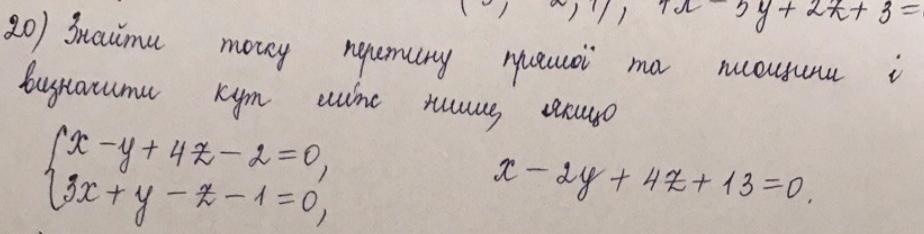 2, 1), 4x - 5y + 2z + 3 =
20) Знайти точку перетину прямої та площини і
визначити кут між ними, якщо
{x - y + 4z - 2 = 0,
{3x + y - z - 1 = 0,
x - 2y + 4z + 13 = 0.